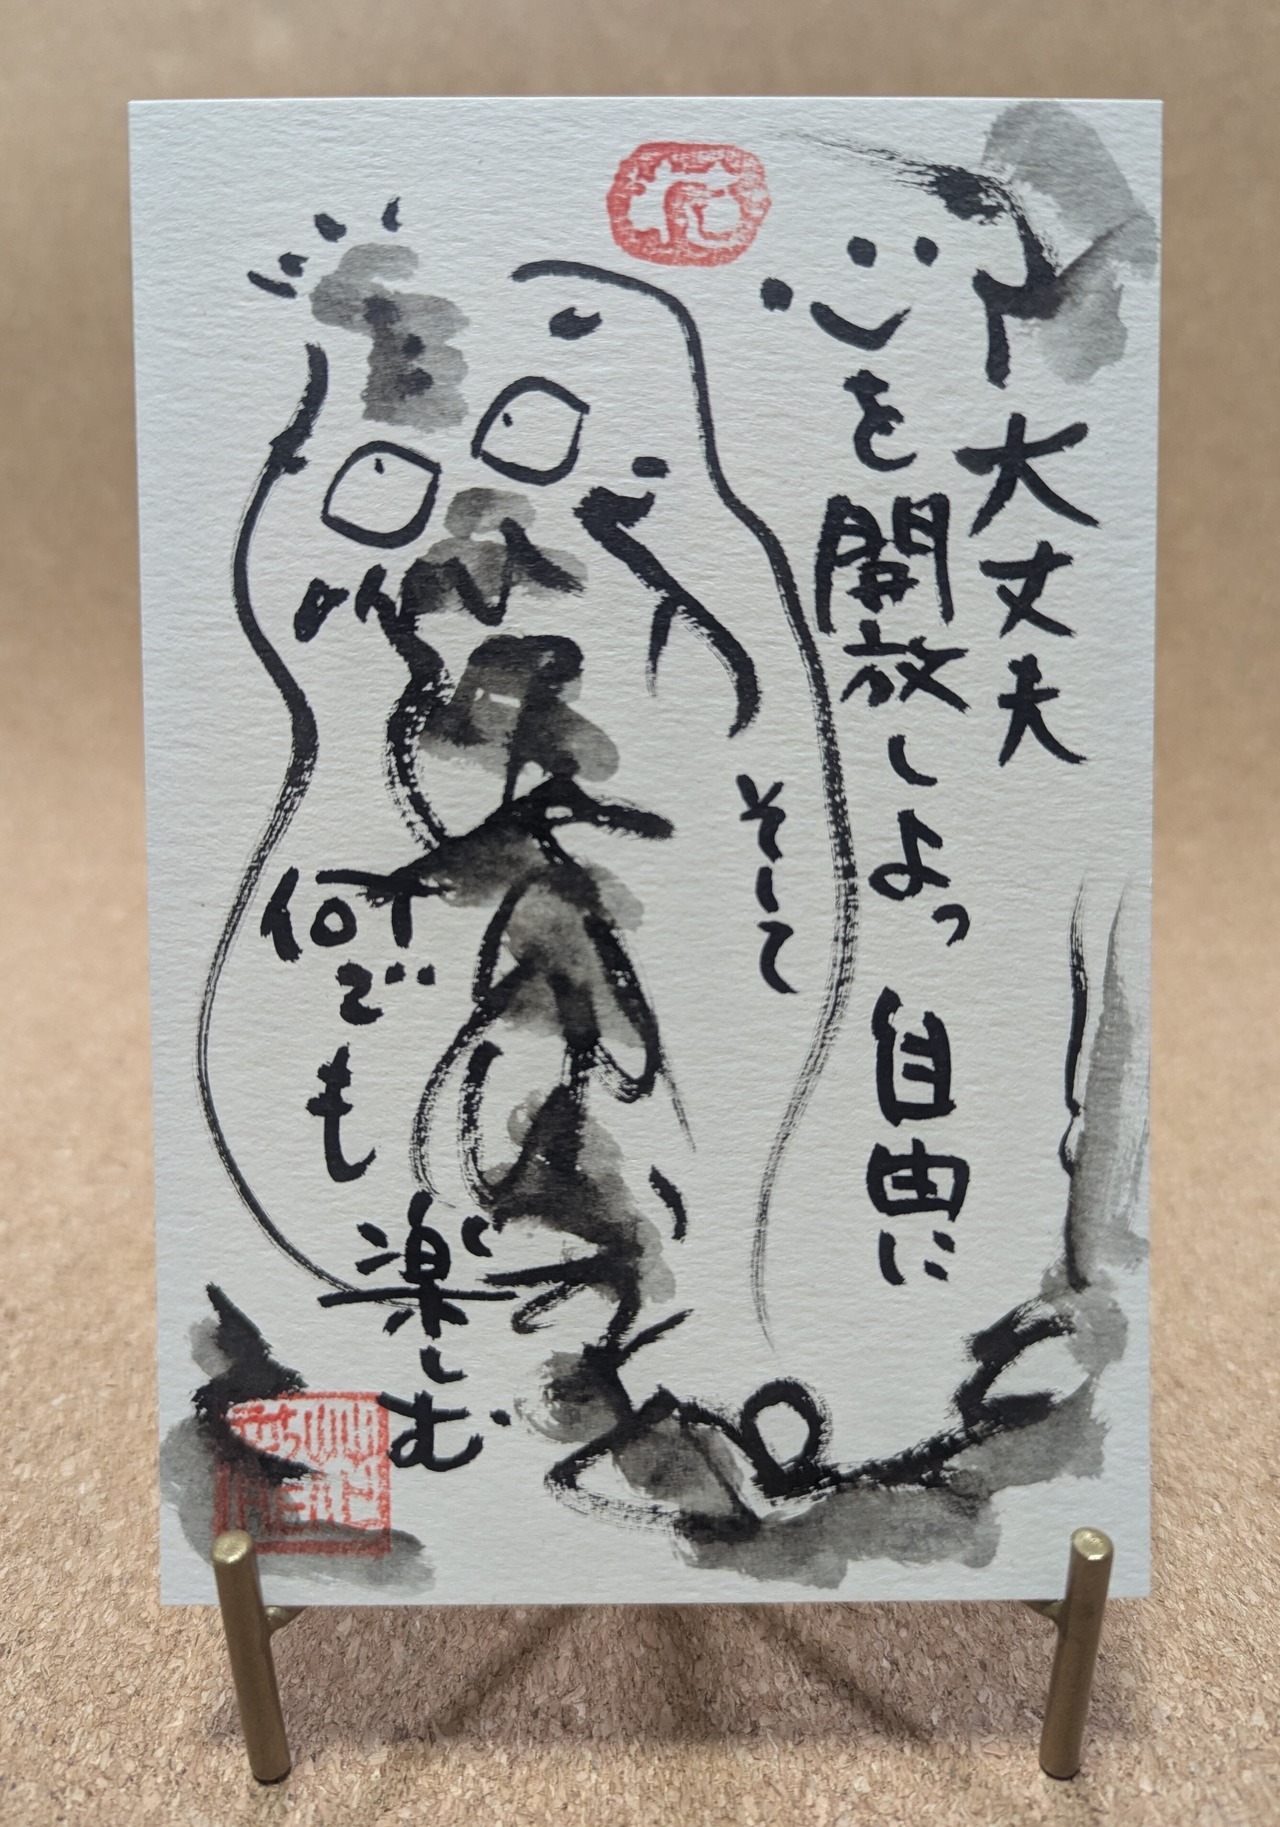 大丈夫
心を開放しよっ 自由に
そして
何でも
楽しむ